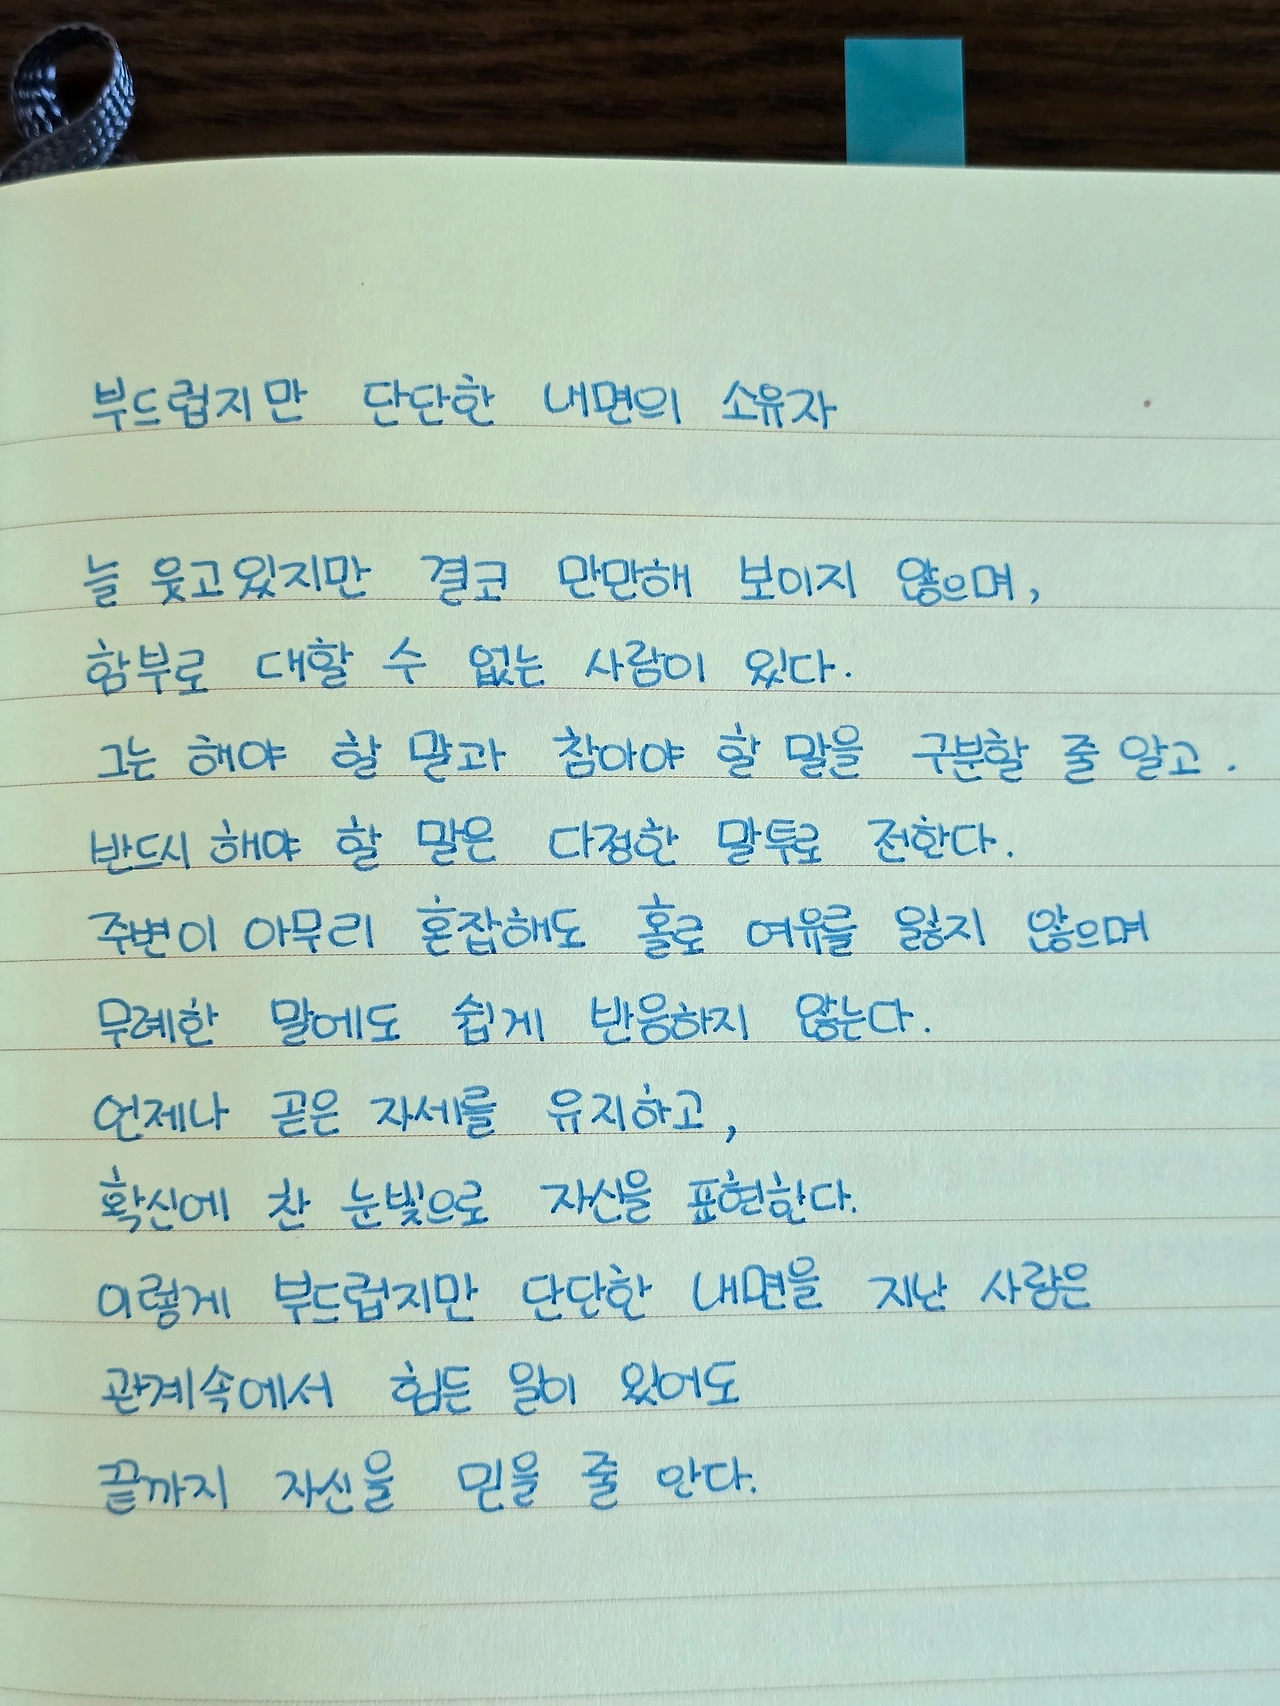 부드럽지만 단단한 내면의 소유자
늘 웃고있지만 결코 만만해 보이지 않으며,
함부로 대할 수 없는 사람이 있다.
그는 해야 할 말과 참아야 할 말을 구분할 줄 알고.
반드시 해야 할 말은 다정한 말투로 전한다.
주변이 아무리 혼잡해도 홀로 여유를 잃지 않으며
무례한 말에도 쉽게 반응하지 않는다.
언제나 곧은 자세를 유지하고,
확신에 찬 눈빛으로 자신을 표현한다.
이렇게 부드럽지만 단단한 내면을 지난 사람은
관계속에서 힘든 일이 있어도
끝까지 자신을 믿을 줄 안다.